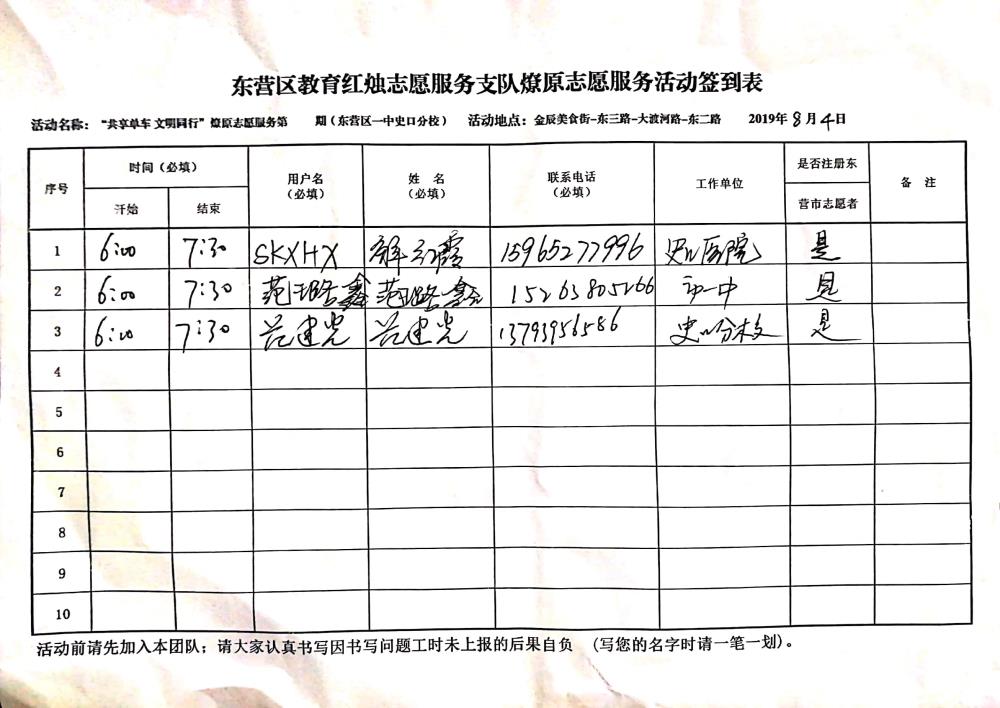 东营区教育红烛志愿服务支队燎原志愿服务活动签到表
活动名称：“共享单车 文明同行”燎原志愿服务第 期（东营区一中史口分校） 活动地点：金辰美食街-东三路-大渡河路-东二路 2019年8月4日
序号 时间（必填） 开始 结束 用户名（必填） 姓 名（必填） 联系电话（必填） 工作单位 是否注册东营市志愿者 备 注
1 6:00 7:30 SKXHX 解红霞 15965277996 史口医院 是
2 6:00 7:30 范璐鑫 范璐鑫 15263805266 市一中 是
3 6:00 7:30 范建光 范建光 13793956586 史口分校 是
4
5
6
7
8
9
10
活动前请先加入本团队；请大家认真书写因书写问题工时未上报的后果自负 （写您的名字时请一笔一划）。